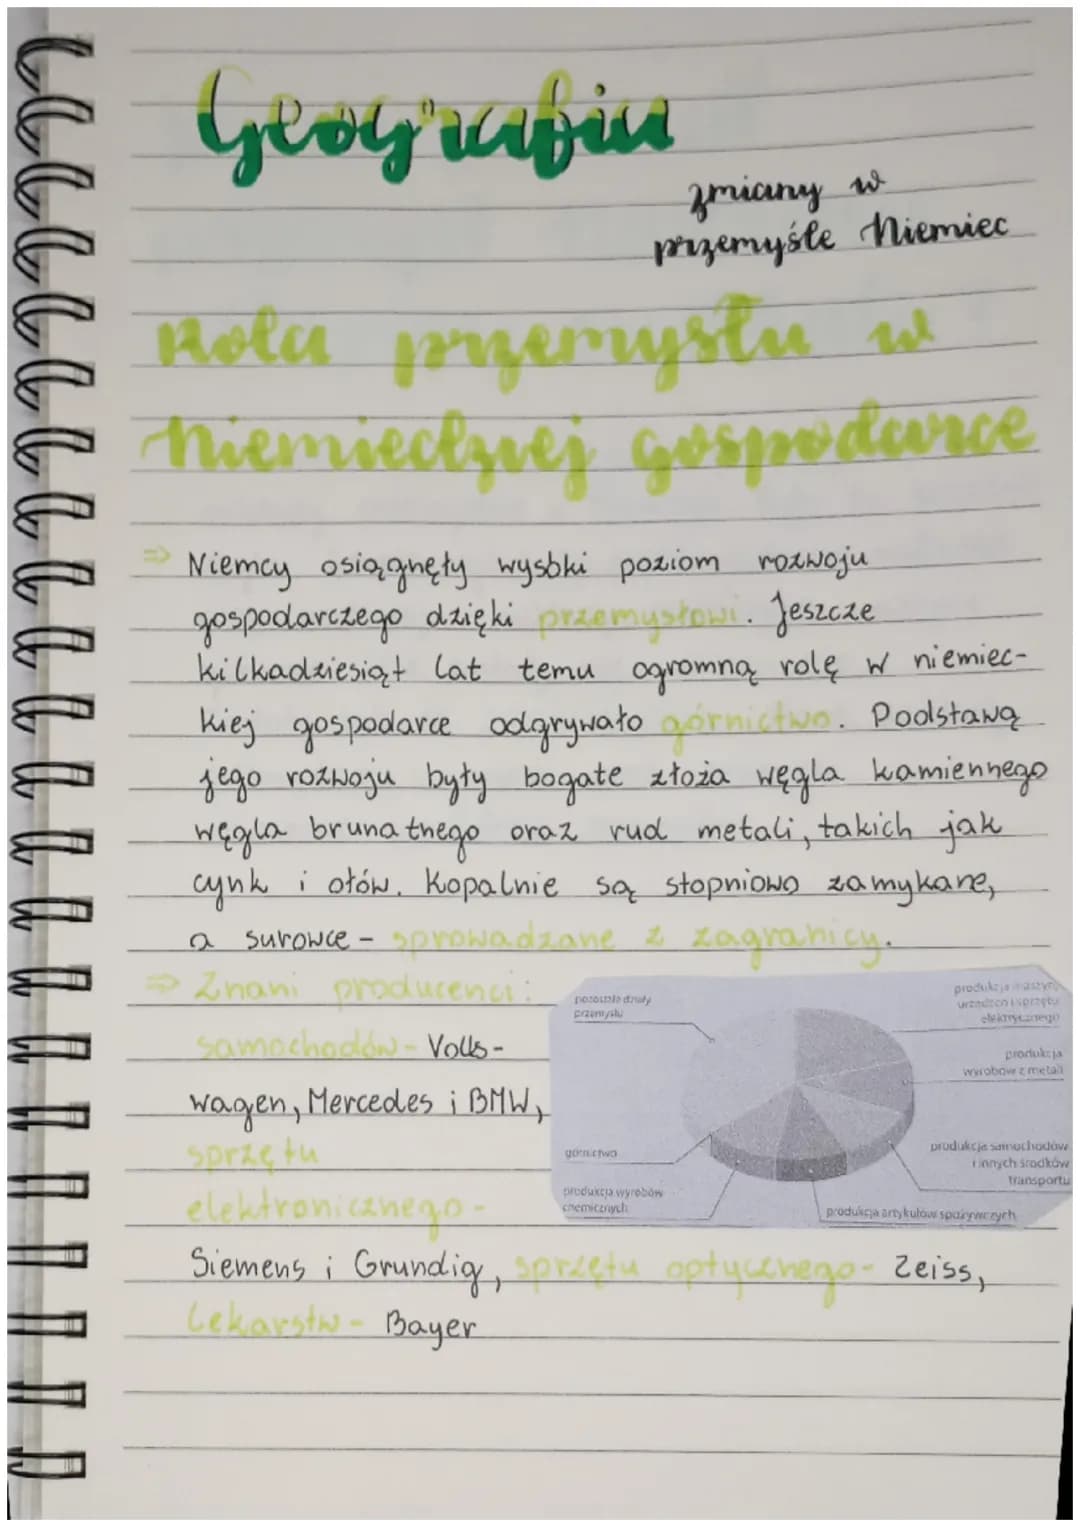 Geografia
zmiany w
przemyśle Niemiec
Rola przemysłu w
niemieckiej gospodarce
⇒ Niemcy osiągnęły wysoki poziom rozwoju
gospodarczego dzięki przemysłowi. Jeszcze
kilkadziesiąt lat temu ogromną rolę w niemiec-
kiej gospodarce odgrywało górnictwo. Podstawą
jego rozwoju były bogate złoża węgla kamiennego
węgla brunatnego oraz rud metali, takich jak
cynk i ołów. Kopalnie są stopniowo zamykane,
a surowce - sprowadzane z zagranicy.
⇒ Znani producenci:
samochodów - Volks-
wagen, Mercedes i BMW,
sprzętu
elektronicznego -
Siemens i Grundig, sprzętu optycznego - Zeiss,
Lekarstw - Bayer
pozostałe działy
przemysłu
produkcja maszyn,
urządzeń i sprzętu
elektrycznego
produkcja
wyrobów z metali
produkcja samochodów
i innych środków
transportu
produkcja artykułów spożywczych
produkcja wyrobów
chemicznych
górnictwo